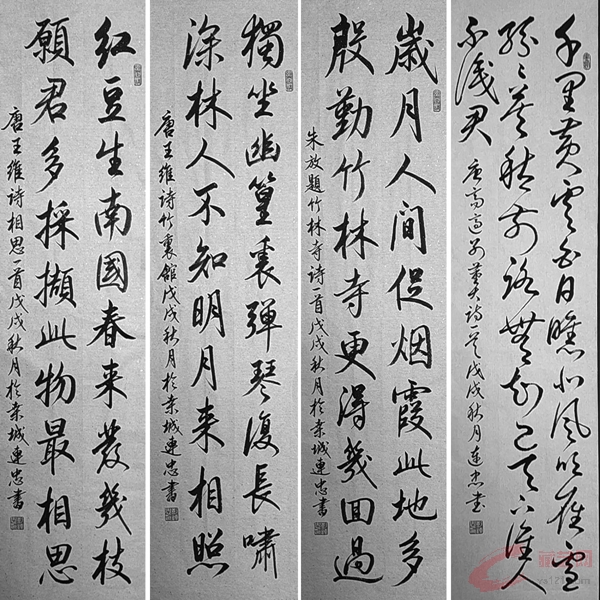 千里黄雲白日曛北風吹雁雪
紛々莫愁前路無知己天下誰人
不識君
唐高適別董大詩一首戊戌秋月連忠書
歲月人間促烟霞此地多
殷勤竹林寺更得幾回過
朱放題竹林寺詩一首戊戌秋月於城連忠書
獨坐幽篁裏彈琴復長嘯
深林人不知明月来相照
唐王維詩竹裏館戊戌秋月於城連忠書
红豆生南國春来發幾枝
願君多採擷此物最相思
唐王維詩相思一首戊戌秋月於城連忠書